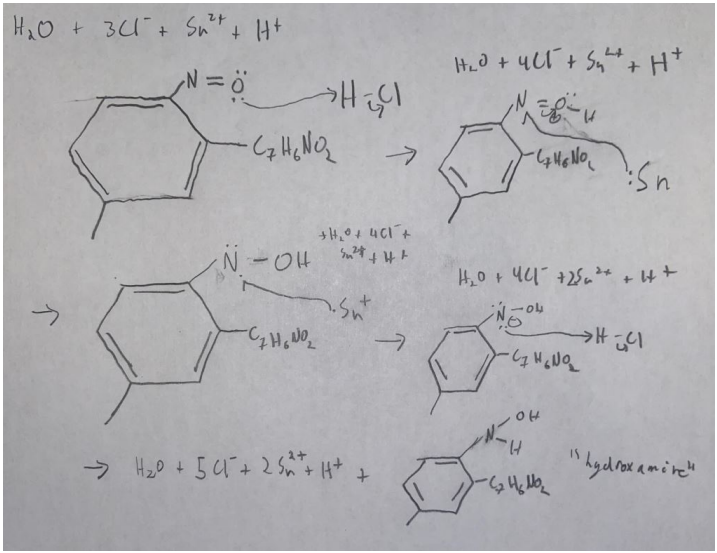 H₂O + 3Cl⁻ + Sn²⁺ + H⁺
N=O H-Cl
C₇H₆NO₂
→
H₂O + 4Cl⁻ + Sn²⁺ + H⁺
N=O-H
C₇H₆NO₂
:Sn
→ N-OH
C₇H₆NO₂
+H₂O + 4Cl⁻ +
Sn²⁺ + H⁺
·Sn⁺
→
H₂O + 4Cl⁻ + 2Sn²⁺ + H⁺
N-OH H-Cl
C₇H₆NO₂
→ H₂O + 5Cl⁻ + 2Sn²⁺ + H⁺ +
N OH
H
C₇H₆NO₂
"hydroxamine"